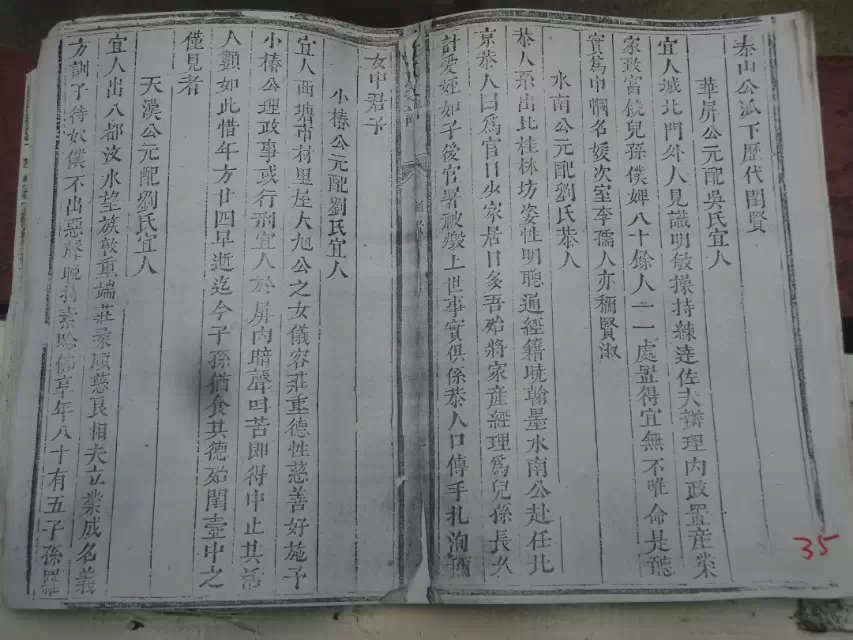 泰山公派下歷代閨賢
華屏公元配吳氏宜人
宜人城北門外人見識明敏操持練達佐大辦理內政置產業
家致富饒兒孫僕婢八十餘人一一處置得宜無不唯命是聽
實爲巾幗名媛次室李孺人亦稱賢淑
水南公元配劉氏恭人
恭人系出北桂林坊姿性明聰通經籍曉翰墨水南公赴任北
京恭人曰爲官日少家居日多吾殆將家產經理爲兒孫長久
計愛姪如子後官署被燬上世事實俱係恭人口傳手札洵稱
女中君子
小椿公元配劉氏宜人
宜人西塘市材里屋大旭公之女儀容莊重德性慈善好施予
小椿公理政事或行刑宜人於屏內暗聲叫苦即得中止其活
人顴如此惜年方廿四早逝迄今子孫猶食其德殆閨壼中之
僅見者
天漢公元配劉氏宜人
宜人出八都汝水望族敦重端莊柔順慈良相夫立業成名義
方訓子待奴僕不出惡聲晚持素唸佛享年八十有五子孫羅
35